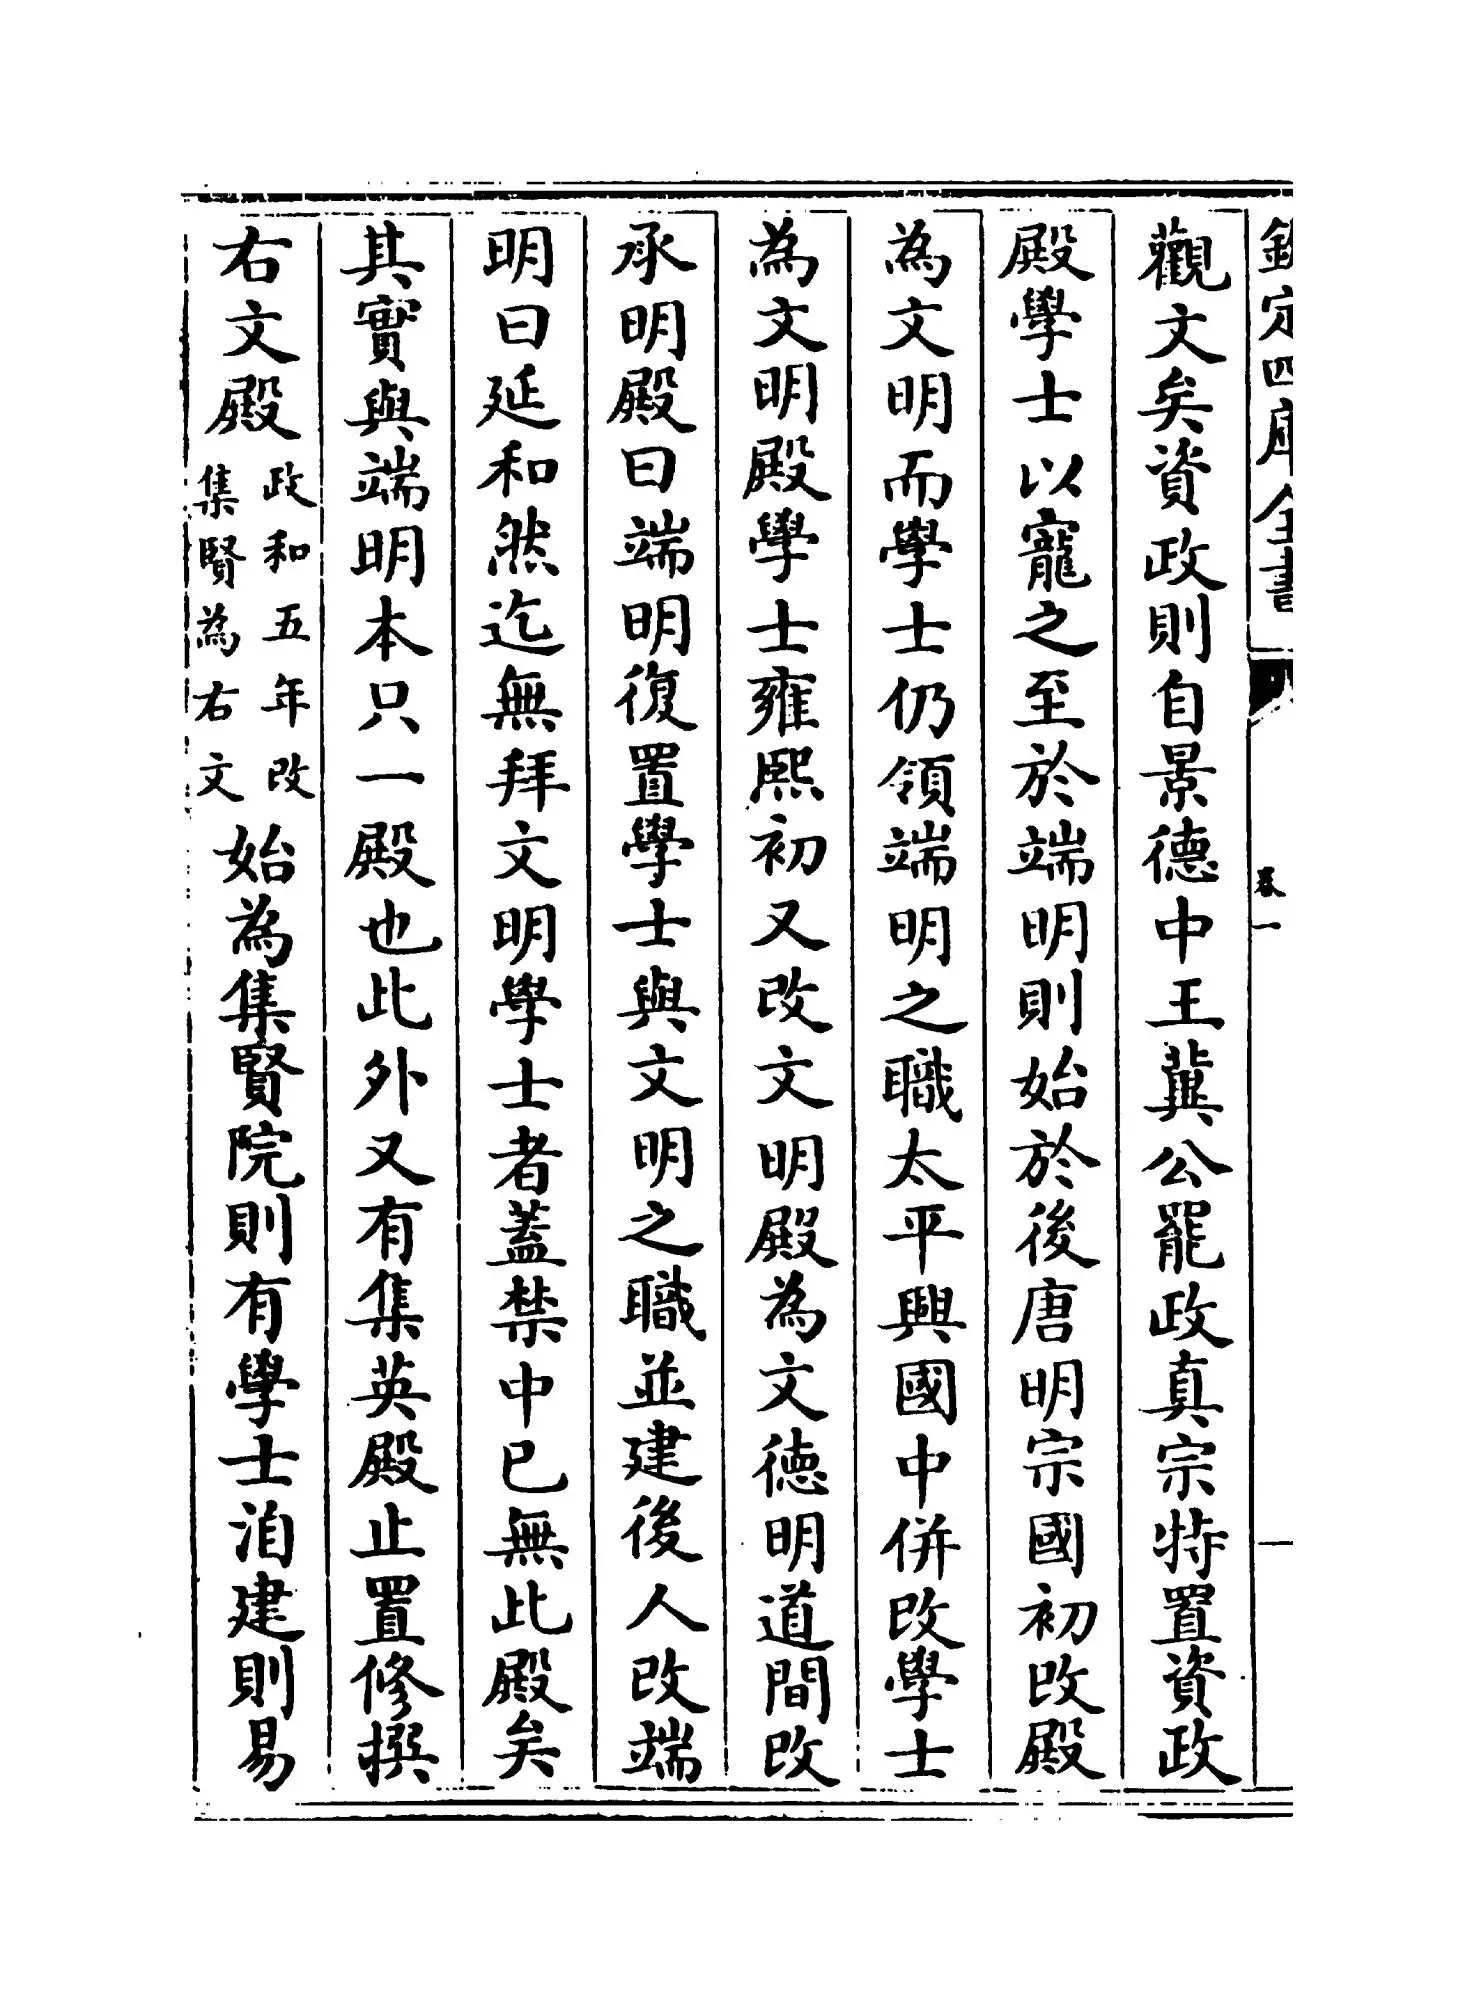 欽定四庫全書
卷一
觀文矣資政則自景德中王冀公罷政真宗特置資政
殿學士以寵之至於端明則始於後唐明宗國初改殿
為文明而學士仍領端明之職太平興國中併改學士
為文明殿學士雍熙初又改文明殿為文德明道間改
承明殿曰端明復置學士與文明之職並建後人改端
明曰延和然迄無拜文明學士者蓋禁中已無此殿矣
其實與端明本只一殿也此外又有集英殿止置修撰
右文殿政和五年改集賢為右文始為集賢院則有學士洎建則易